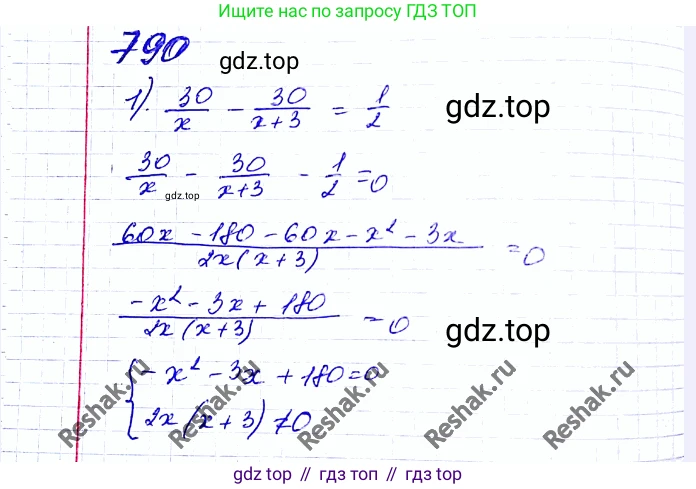 Ищите нас по запросу ГДЗ ТОП
790
gdz.top
1). 30/x - 30/(x+3) = 1/2
gdz.top
30/x - 30/(x+3) - 1/2 = 0
gdz.top
(60x - 180 - 60x - x² - 3x)/(2x(x+3)) = 0
(-x² - 3x + 180)/(2x(x+3)) = 0
gdz.top
{ -x² - 3x + 180 = 0
2x(x+3) ≠ 0
Reshak.ru
Reshak.ru
Reshak.ru
Reshak.ru
gdz top // гдз топ // гдз.топ // gdz.top